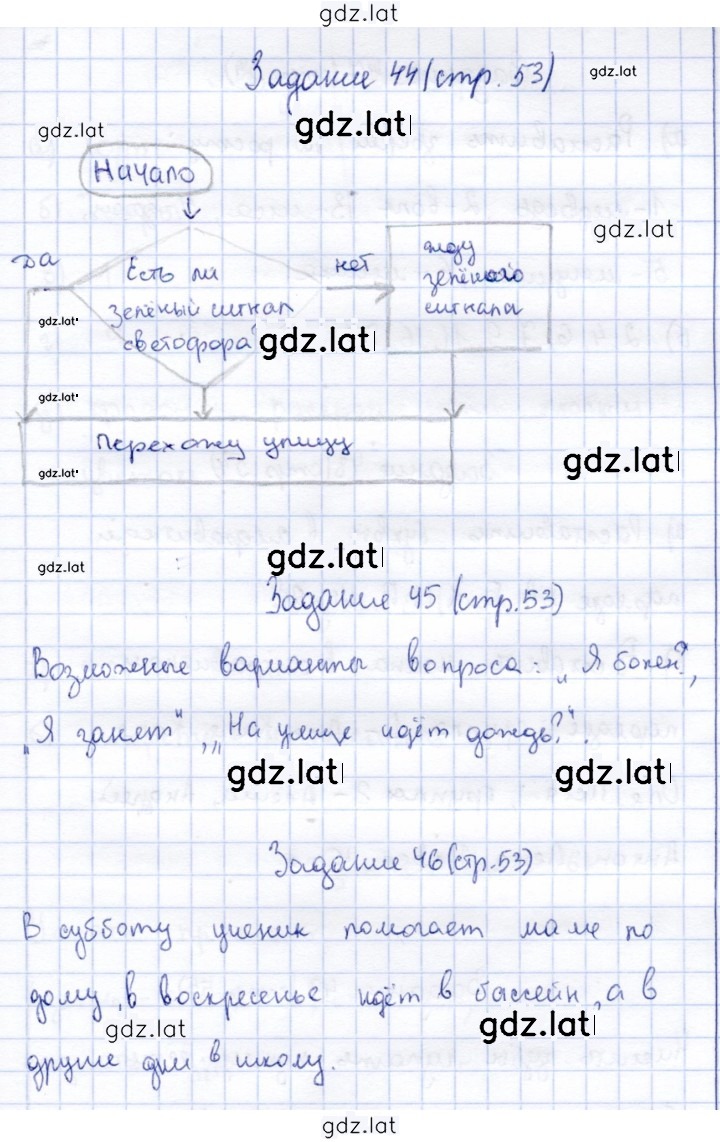 gdz.lat
Задание 44 (стр. 53)
gdz.lat
gdz.lat
gdz.lat
Начало
gdz.lat
Да
Есть ли
зелёный сигнал
светофора
нет
жду
зелёного
сигнала
gdz.lat
gdz.lat
gdz.lat
Перехожу улицу
gdz.lat
gdz.lat
gdz.lat
gdz.lat
Задание 45 (стр. 53)
Возможные варианты вопроса: „Я болен?",
„Я занят", „На улице идёт дождь?".
gdz.lat
gdz.lat
Задание 46 (стр. 53)
В субботу ученик помогает маме по
дому, в воскресенье идёт в бассейн, а в
gdz.lat
gdz.lat
другие дни в школу.
gdz.lat